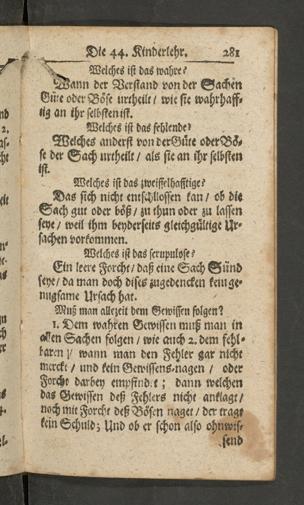 Die 44. Kinderlehr. 281
Welches ist das wahre?
Wann der Verstand von der Sachen
Güte oder Böse urtheilt / wie sie wahrhaff-
tig an ihr selbsten ist.
Welches ist das fehlende?
Welches anderst von der Güte oder Bö-
se der Sach urtheilt / als sie an ihr selbsten
ist.
Welches ist das zweiffelhafftige?
Das sich nicht entschlossen kan / ob die
Sach gut oder böß / zu thun oder zu lassen
seye / weil ihm beyderseits gleichgültige Ur-
sachen vorkommen.
Welches ist das scrupulose?
Ein leere Forcht / daß eine Sach Sünd
seye / da man doch dises zugedencken kein ge-
nugsame Ursach hat.
Muß man allezeit dem Gewissen folgen?
1. Dem wahren Gewissen muß man in
allen Sachen folgen / wie auch 2. dem fehl-
baren / wann man den Fehler gar nicht
merckt / und kein Gewissens-nagen / oder
Forcht darbey empfindet; dann welchen
das Gewissen deß Fehlers nicht anklagt /
noch mit Forcht deß Bösen naget / der tragt
kein Schuld; Und ob er schon also ohnwis-
send